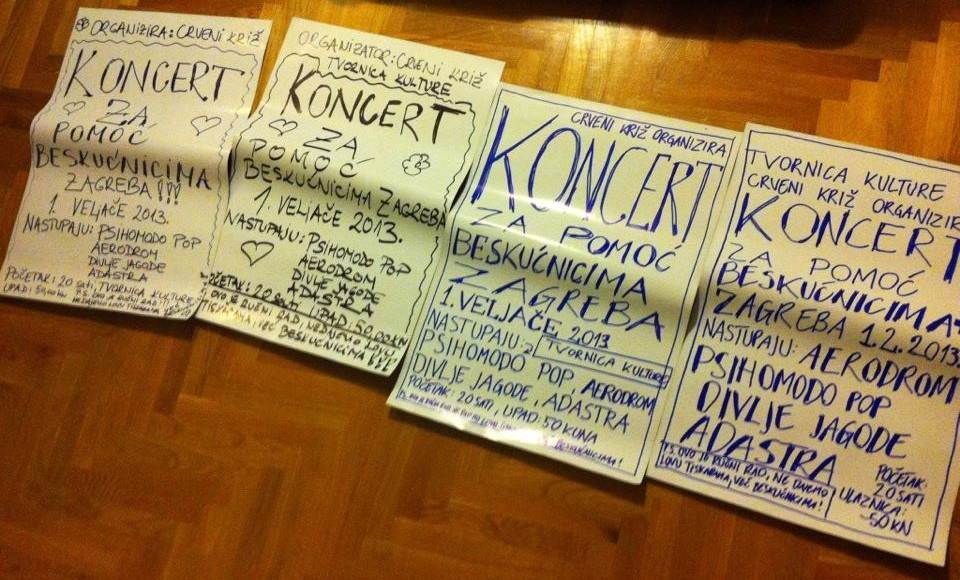 ORGANIZIRA: CRVENI KRIŽ
KONCERT
ZA
POMOĆ
BESKUĆNICIMA
ZAGREBA!!!
1. VELJAČE 2013.
NASTUPAJU: PSIHOMODO POP
AERODROM
DIVLJE JAGODE
ADASTRA
POČETAK: 20 SATI, TVORNICA KULTURE
UPAD: 50,00 KN
ORGANIZATOR: CRVENI KRIŽ
TVORNICA KULTURE
KONCERT
ZA
POMOĆ
BESKUĆNICIMA ZAGREBA
1. VELJAČE 2013.
NASTUPAJU: PSIHOMODO POP
AERODROM
DIVLJE JAGODE
ADASTRA
POČETAK: 20 SATI, UPAD: 50,00 KN
OVO JE RUČNI RAD, NE DAJEMO LOVU
TISKARAMA, VEĆ BESKUĆNICIMA!!!
CRVENI KRIŽ ORGANIZIRA
KONCERT
ZA POMOĆ
BESKUĆNICIMA
ZAGREBA
1. VELJAČE 2013
TVORNICA KULTURE
NASTUPAJU:
PSIHOMODO POP, AERODROM
DIVLJE JAGODE, ADASTRA
POČETAK: 20 SATI, UPAD: 50 KUNA
BESKUĆNICIMA!
TVORNICA KULTURE
CRVENI KRIŽ ORGANIZIRA
KONCERT
ZA POMOĆ
BESKUĆNICIMA
ZAGREBA 1.2.2013
NASTUPAJU: AERODROM
PSIHOMODO POP
DIVLJE JAGODE
ADASTRA
P.S. OVO JE RUČNI RAD, NE DAJEMO
LOVU TISKARAMA, VEĆ BESKUĆNICIMA!
POČETAK:
20 SATI
ULAZNICA:
50 KN